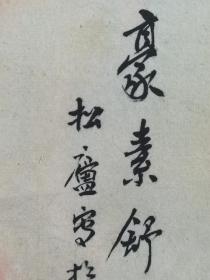 豪素舒
松廬寫於